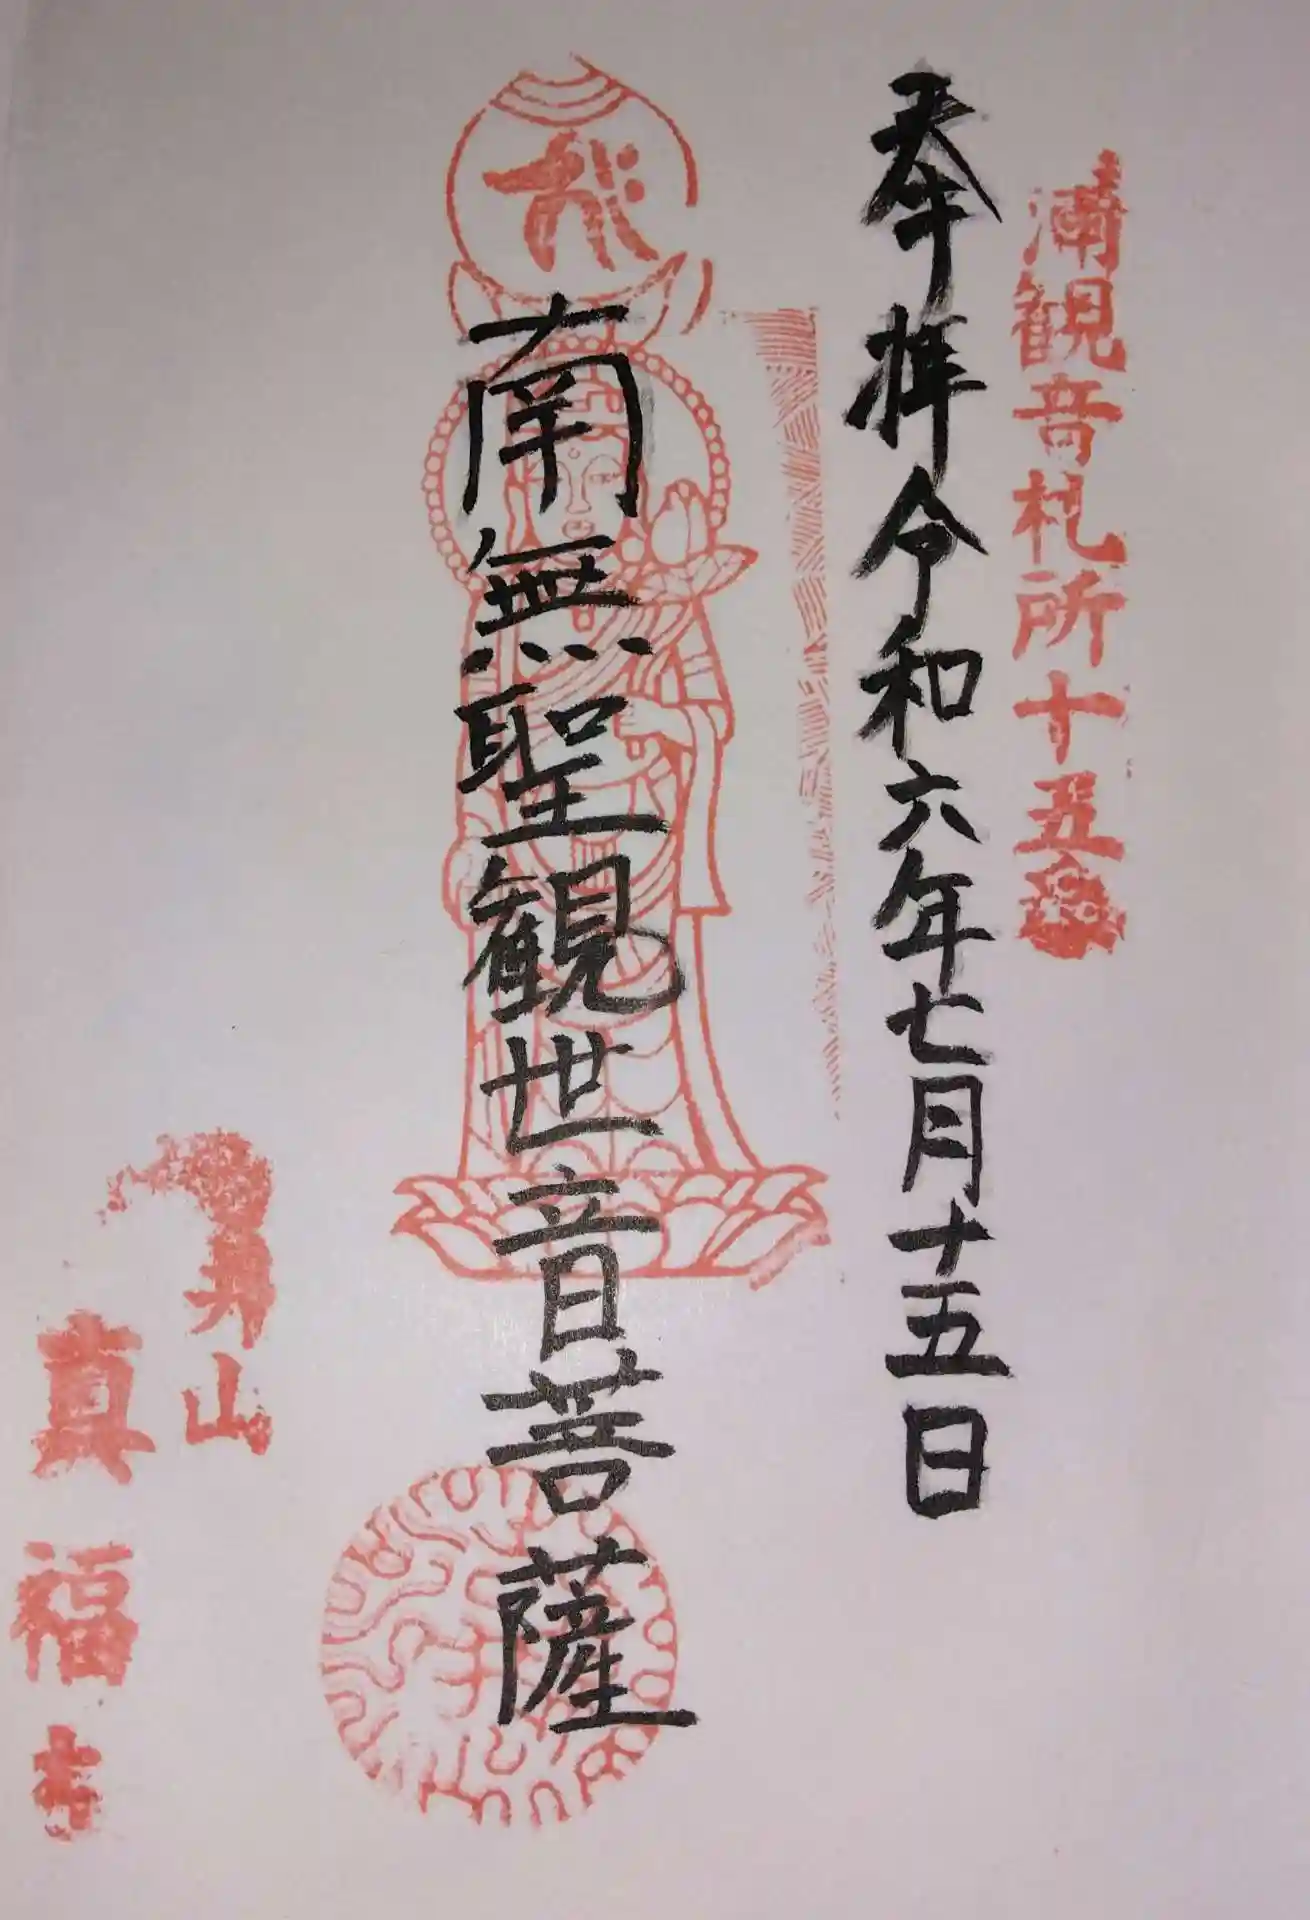 湳観音札所十五番
奉拝令和六年七月十五日
南無聖観世音菩薩
山
真福寺